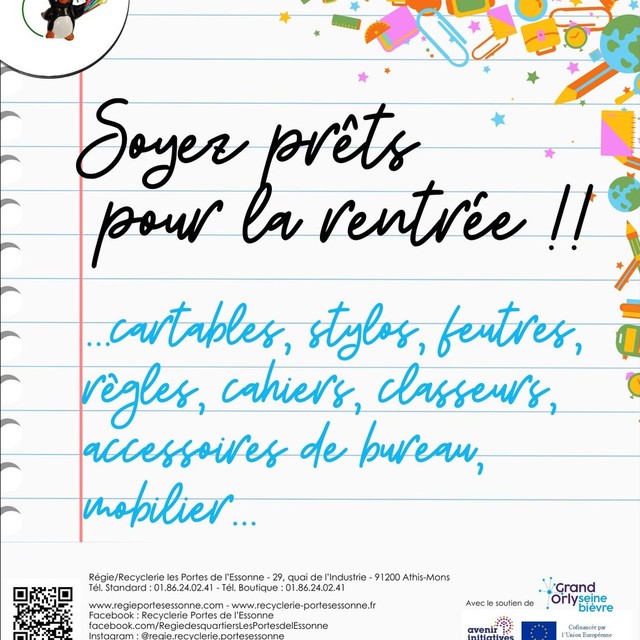 Soyez prêts
pour la rentrée !!
...cartables, stylos, feutres,
règles, cahiers, classeurs,
accessoires de bureau,
mobilier...
Régie/Recyclerie les Portes de l'Essonne - 29, quai de l'Industrie - 91200 Athis-Mons
Tél. Standard : 01.86.24.02.41 - Tél. Boutique : 01.86.24.02.41
www.regieportesessonne.com - www.recyclerie-portesessonne.fr
Facebook : Recyclerie Portes de l'Essonne
facebook.com/RegiedesquartiersLesPortesdelEssonne
Instagram : @regie.recyclerie.portesessonne
Avec le soutien de
Grand
Orly seine
bièvre
avenir
initiatives
Cofinancée par
l'Union Européenne